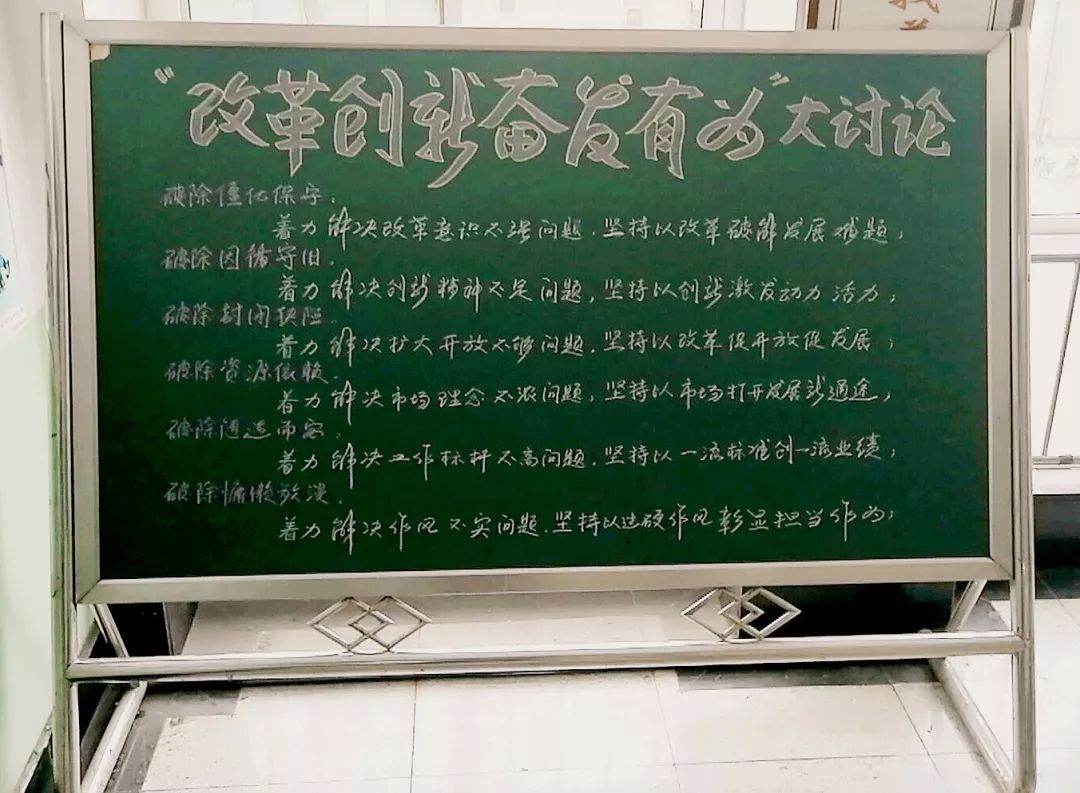 “改革创新奋发有为”大讨论
破除僵化保守,
着力解决改革意识不强问题,坚持以改革破解发展难题;
破除因循守旧,
着力解决创新精神不足问题,坚持以创新激发动力活力;
破除封闭狭隘,
着力解决扩大开放不够问题,坚持以改革促开放促发展;
破除资源依赖,
着力解决市场理念不浓问题,坚持以市场打开发展新通途;
破除随遇而安,
着力解决工作标杆不高问题,坚持以一流标准创一流业绩;
破除慵懒散漫,
着力解决作风不实问题,坚持以过硬作风彰显担当作为;